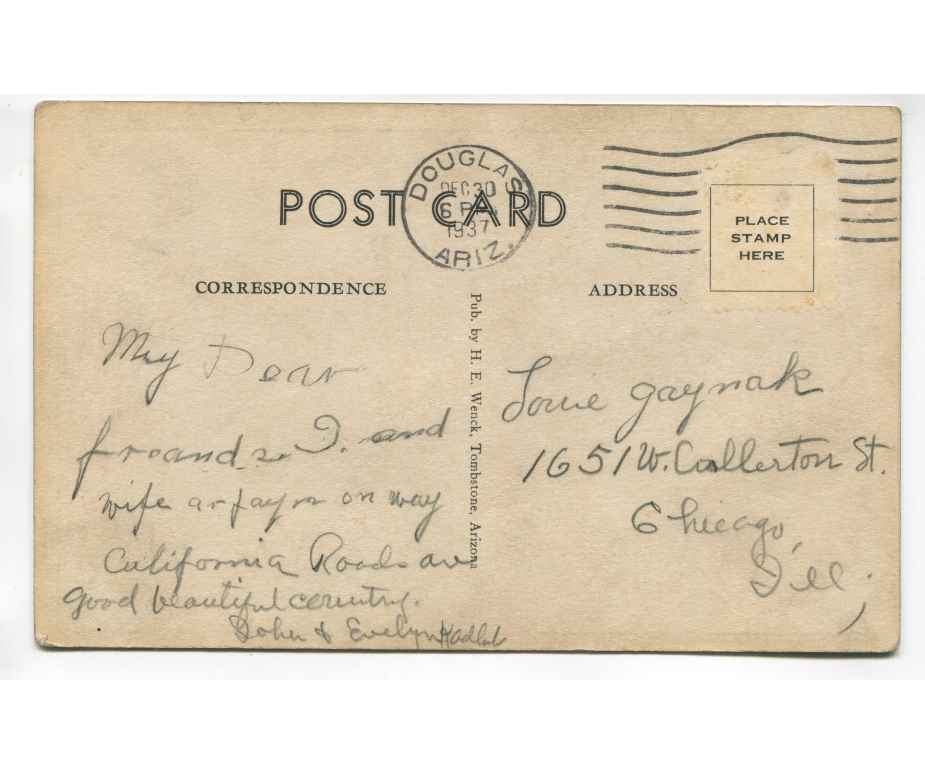 POST CARD
DOUGLAS
DEC 30
6 PM
1937
ARIZ.
PLACE
STAMP
HERE
CORRESPONDENCE
ADDRESS
Pub. by H. E. Wenck, Tombstone, Arizona
My Dear
freands. I. and
wife ar on way
California Roads are
good beautiful country.
John & Evelyn Kadlub
Louie Gaynak
1651 W. Cullerton St.
Chicago,
Ill,